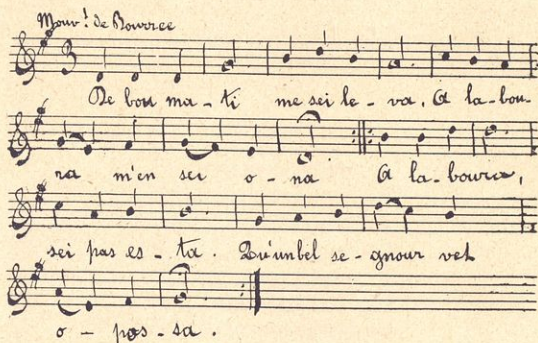 Mouv! de Bourrée
3
De bou ma - ti me sei le - va, A la - bou -
ra m'en sei o - na A la - boura,
sei pas es - ta. Qu'un bel se - gnour vet
o - pos - sa.